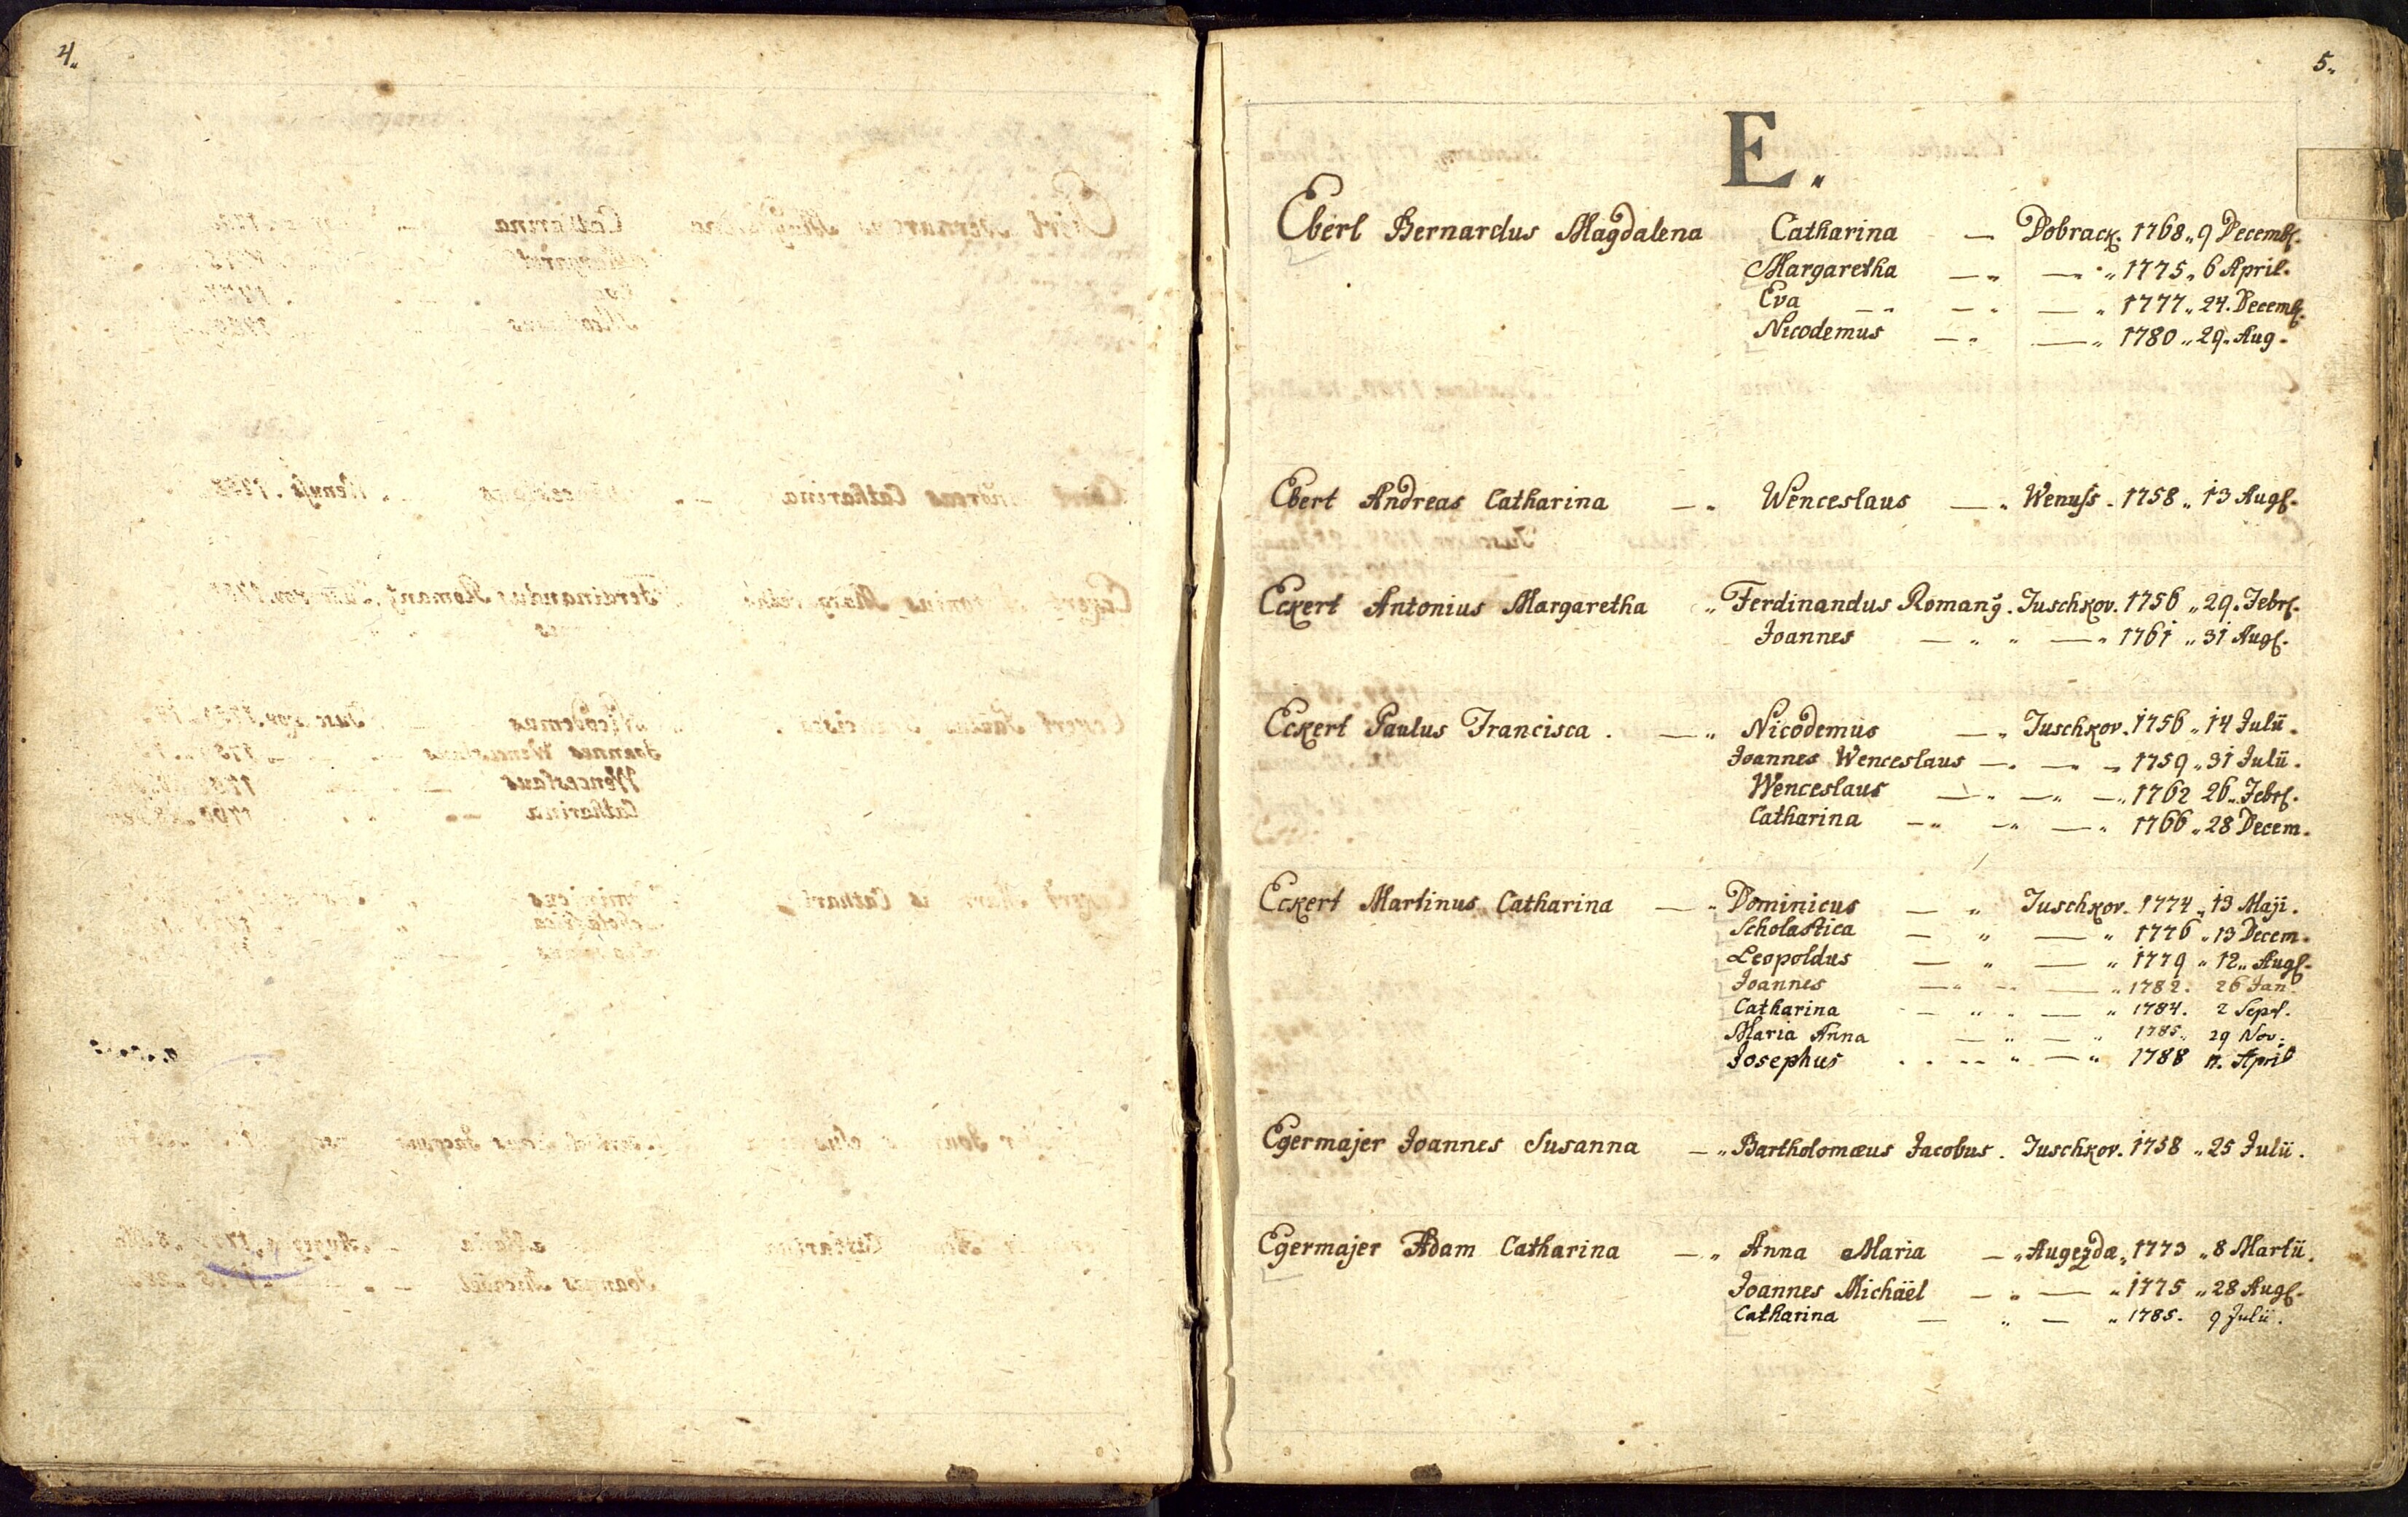 4.
5.
E.
Eberl Bernardus Magdalena Catharina — Dobrack. 1768 „ 9 Decemb.
Margaretha — „ — „ 1775 „ 6 April.
Eva — „ — „ — „ 1777 „ 24. Decemb.
Nicodemus — „ — „ 1780 „ 29. Aug.
Ebert Andreas Catharina — „ Wenceslaus — „ Wenuss. 1758 „ 13 Aug.
Eckert Antonius Margaretha „ Ferdinandus Romang. Tuschkov. 1756 „ 29. Febr.
Joannes — „ „ — „ 1761 „ 31 Aug.
Eckert Paulus Francisca . — „ Nicodemus — „ Tuschkov. 1756 „ 14 Julii.
Joannes Wenceslaus — „ — „ — „ 1759 „ 31 Julii.
Wenceslaus — „ — „ — „ 1762 26 „ Febr.
Catharina — „ — „ — „ 1766 „ 28 Decem.
Eckert Martinus Catharina — „ Dominicus — „ Tuschkov. 1774 „ 13 Maji.
Scholastica — „ — „ 1776 „ 13 Decem.
Leopoldus — „ — „ 1779 „ 12 „ Aug.
Joannes — „ — „ — „ 1782. 26 Jan.
Catharina — „ „ — „ 1784. 2 Sept.
Maria Anna — „ — „ 1785. 29 Nov.
Josephus — „ — „ 1788 April
Egermajer Joannes Susanna — „ Bartholomæus Jacobus. Tuschkov. 1758 „ 25 Julii.
Egermajer Adam Catharina — „ Anna Maria — „ Augezda „ 1773 „ 8 Martii.
Joannes Michaël — „ — „ 1775 „ 28 Aug.
Catharina — „ — „ 1785. 9 Julii.